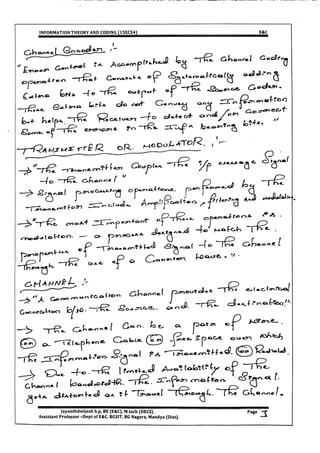 INFORMATION THEORY AND CODING (15EC54) E&C
Channel Encoder :-
"Error Control is Accomplished by The Channel Coding
operation That Consists of Systematically adding
Extra bits to The output of The Source Coder.
These Extra bits do not Convey any Information
but helps The Receiver to detect and/or Correct
Some of The errors in The Infn bearing bits."
TRANSMITTER OR MODULATOR :-
→ "The Transmitter Couples The i/p message Signal
to The Channel"
→ Signal processing operations performed by The
Transmitter Include Amplification, filtering and modulation
→ "The most Important of These operations is
modulation - a process designed to Match The
properties of Transmitted Signal to The Channel
Through The use of a Carrier wave.".
CHANNEL :-
→ "A Communication Channel provides The electrical
Connection b/n The Source and The destination".
→ The Channel Can be a pair of wire
or a Telephone Cable or free space over which
The Information Signal is Transmitted or Radiated.
→ Due to The limited Availability of The
Channel bandwidth, The Information Signal
gets distorted as it Travel Through The Channel.
Jayanthdwijesh h.p, BE (E&C), M.tech (DECS).
Assistant Professor –Dept of E&C. BGSIT, BG Nagara, Mandya (Dist).
Page 3